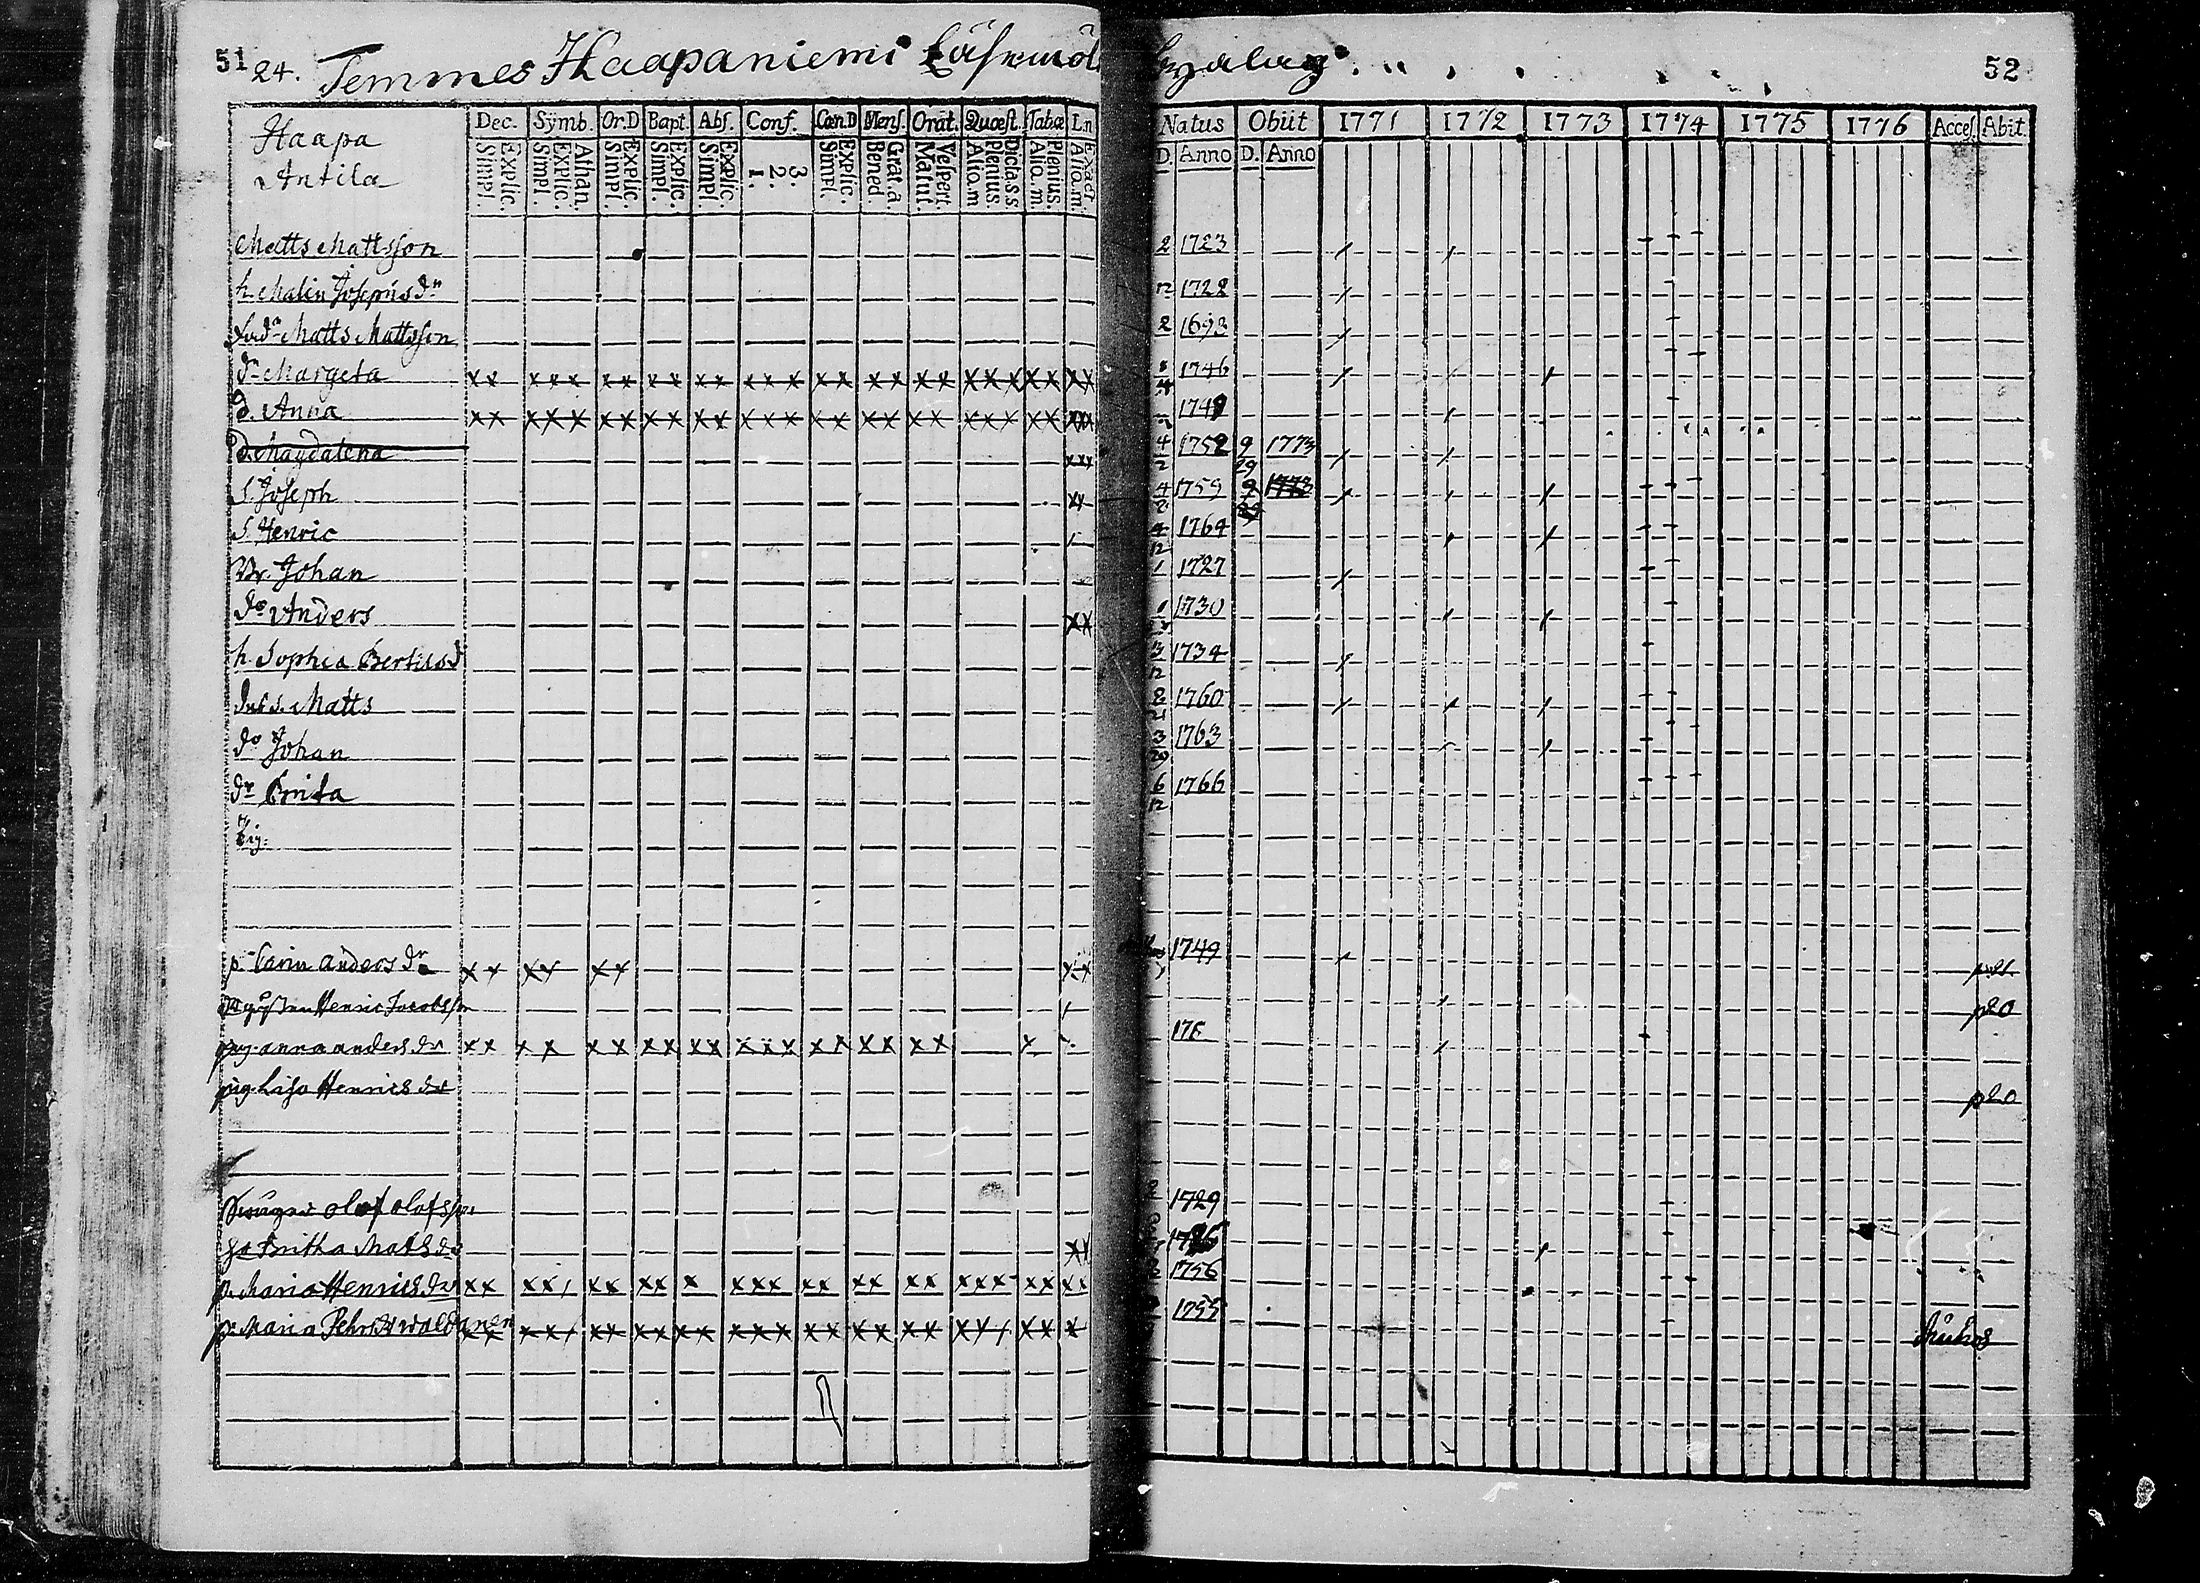 51 24. Temmes Haapaniemi
52
Haapa
Antila
Dec. Symb. Or.D Bapt. Abs. Conf. Cœn.D Mens. Orat. Quœst. Tabœ Ln
Natus Obiit 1771 1772 1773 1774 1775 1776 Acces. Abit.
Explic. Simpl. Athan. Explic. Simpl. Explic. Simpl. Explic. Simpl. Explic. Simpl. 3. 2. 1. Explic. Simpl. Grat.a Bened. Vespert. Matut. Dicta.s.s Plenius. Aliq.m Plenius. Aliq.m. Exact Aliq.m.
D. Anno D. Anno
Matts Mattsson 2 1723
h. Malin Josephsdr 1722
Matts Mattsson 2 1693
dr Margeta xx xxx xx xx xx xxx xx xx xx xxx xx xx 1746
d. Anna xx xxx xx xx xx xxx xx xx xx xxx xx xxx
d. Magdalena xxx 4 2 1752 9 29 1773
S. Joseph xx 4 2 1759 9 1773
S. Henric 4 12 1764
Br. Johan 1 1727
do Anders xx 1730
h. Sophia Bertilsd 3 12 1734
Matts 2 21 1760
do Johan 3 20 1763
dr Brita 6 12 1766
p. Carin andersdr xx xx xx xx 1749
Henric Jacobsson p20
anna andersdr xx xx xx xx xx xxx xx xx xx x
pig. Lisa Henricsdr p20
olof olofsson 1729
Britha Matsdr xx
p. Maria Henricsdr xx xx xx xx x xxx xx xx xx xxx xx xx 1756
p. Maria Pehrsdr xx xx xx xx xx xxx xx xx xx xx xx x 1755